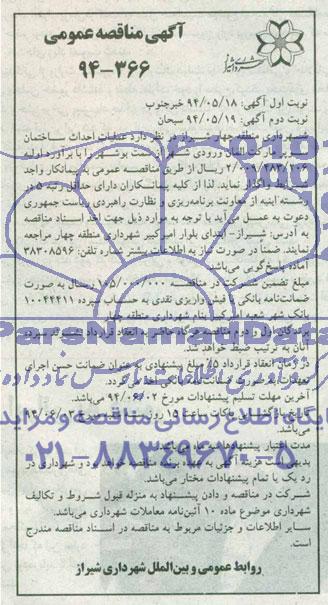 آگهی مناقصه عمومی
۹۴-۳۶۶
نوبت اول آگهی: ۹۴/۰۵/۱۸ خبرجنوب
نوبت دوم آگهی: ۹۴/۰۵/۱۹ سبحان
شهرداری منطقه چهار شیراز در نظر دارد عملیات احداث ساختمان
المان ورودی شهر سمت بوشهر را با برآورد اولیه
ریال از طریق مناقصه عمومی به پیمانکار واجد
شرایط واگذار نماید. لذا از کلیه پیمانکاران دارای حداقل رتبه ۵ در
رشته ابنیه از معاونت برنامه‌ریزی و نظارت راهبردی ریاست جمهوری
دعوت به عمل می‌آید با توجه به موارد ذیل جهت اخذ اسناد مناقصه
به آدرس: شیراز- ابتدای بلوار امیرکبیر شهرداری منطقه چهار مراجعه
نمایند. ضمناً در صورت نیاز به اطلاعات بیشتر شماره تلفن: ۳۸۳۰۸۵۹۶
آماده پاسخ‌گویی می‌باشد.
مبلغ تضمین شرکت در مناقصه ۱۰۵/۰۰۰/۰۰۰ ریال به صورت
ضمانت‌نامه بانکی یا فیش واریزی نقدی به حساب سپرده ۱۰۰۴۴۴۱۱
بانک شهر شعبه امیرکبیر بنام شهرداری منطقه چهار
برندگان اول و دوم مناقصه هرگاه حاضر به انعقاد قرارداد نشوند سپرده
آنان به ترتیب ضبط خواهد شد.
در زمان انعقاد قرارداد ۵٪ مبلغ پیشنهادی به عنوان ضمانت حسن اجرای
تعهدات به صورت ضمانت‌نامه بانکی اخذ می‌گردد.
آخرین مهلت تسلیم پیشنهادات مورخ ۹۴/۰۶/۰۲
پاکات ساعت ۱۵ روز مورخ ۹۴/۰۶/۰۳
می‌باشد.
مدت اعتبار پیشنهادها
بدیهی است هزینه آگهی به عهده برنده مناقصه خواهد بود و شهرداری در
رد یک یا تمام پیشنهادات مختار می‌باشد.
شرکت در مناقصه و دادن پیشنهاد به منزله قبول شروط و تکالیف
شهرداری موضوع ماده ۱۰ آئین‌نامه معاملات شهرداری می‌باشد.
سایر اطلاعات و جزئیات مربوط به مناقصه در اسناد مناقصه مندرج
است.
روابط عمومی و بین‌الملل شهرداری شیراز
ParsNamadData
پایگاه اطلاع رسانی مناقصه و مزایده
۰۲۱-۸۸۳۴۹۶۷۰-۵